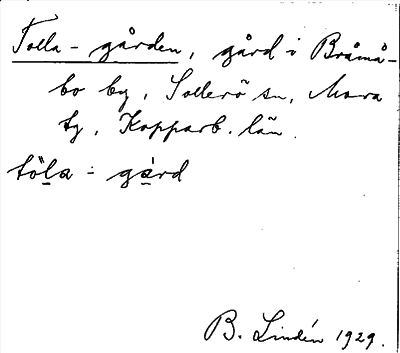 Tolla-gården, gård i Bråmå-
bo by, Sollerö sn, Mora
tg, Kopparb. län.
tö̀l̲a - gá̲rd
B. Lindén 1929.